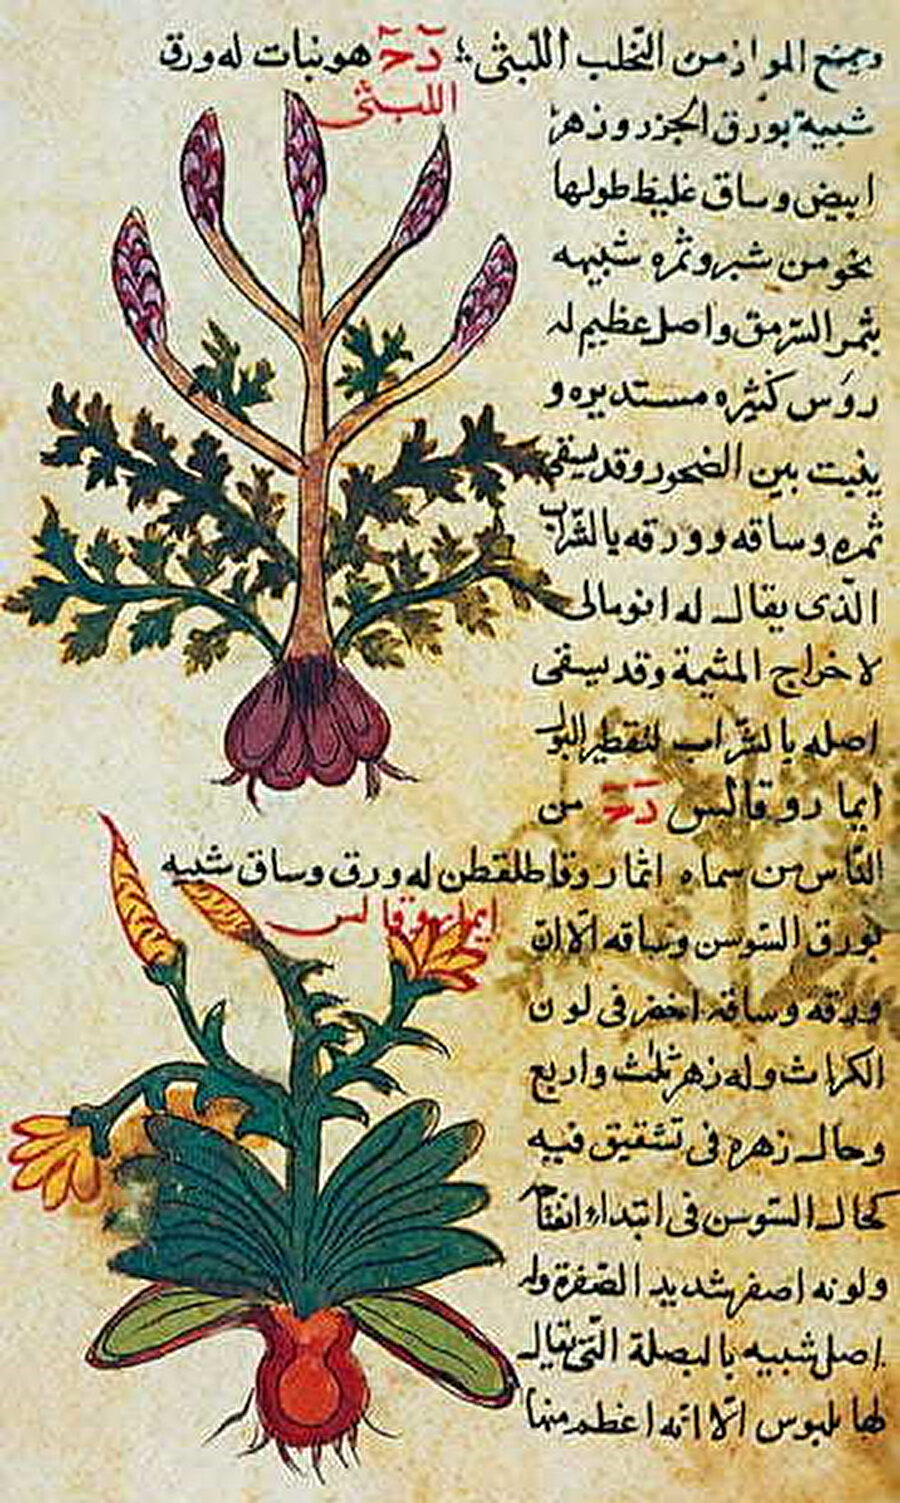 ويمنع المواد من التحلب اللبنى؛ دح هو نبات له ورق
اللبنى
شبيه بورق الجزر وزهر
ابيض وساق غليظ طولها
نحو من شبر وثمره شبيهه
بثمر السرمق واصل عظيم له
روس كثيره مستديره و
ينبت بين الصخور وقد يسقى
ثمره وساقه وورقه بالشراب
الذى يقال له انومالى
لاخراج المشيمة وقد يسقى
اصله بالشراب لتقطير البول
ايما روقالس دح من
الناس من سماه ايمار وقاطلقطن له ورق وساق شبيه
ايماروقالس
بورق السوسن وساقه الا ان
ورقه وساقه اخضر فى لون
الكراث وله زهر ثلث واربع
وحال زهره فى تشقيق فيه
كحال السوسن فى ابتداء انفتاحه
ولونه اصفر شديد الصفرة وله
اصل شبيه بالبصلة التى يقال
لها بلبوس الا انه اعظم منها